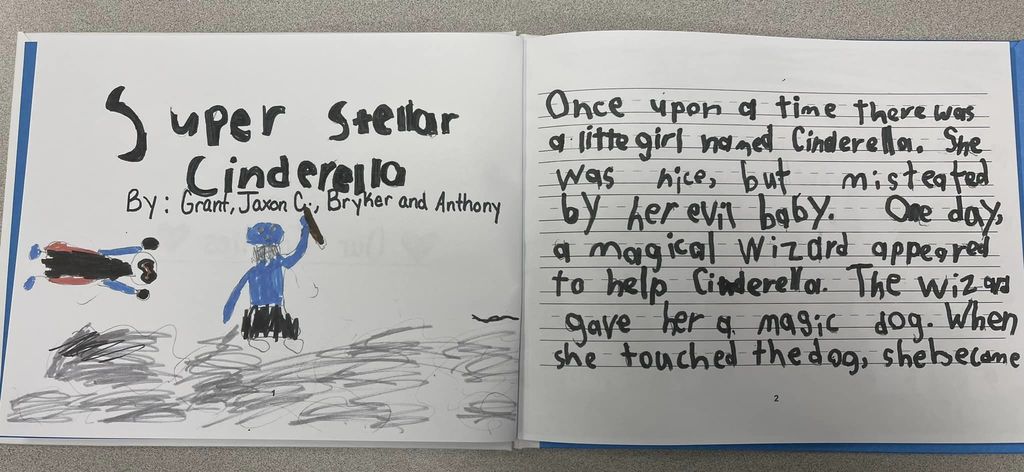 Super Stellar
Cinderella
By: Grant, Jaxon C., Bryker and Anthony
1
Once upon a time there was
a litte girl named Cinderella. She
was nice, but misteated
by her evil baby. One day,
a magical wizard appeared
to help Cinderella. The wizard
gave her a magic dog. When
she touched the dog, she became
2